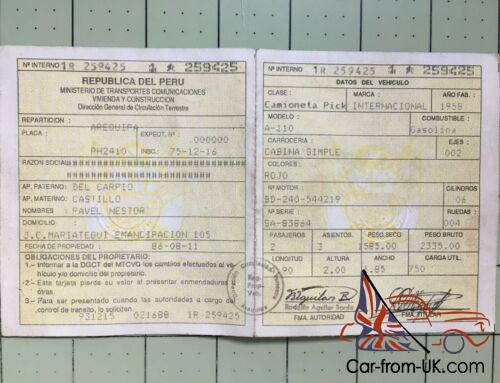 Nº INTERNO 1R 259425 1 R 259425
REPUBLICA DEL PERU
MINISTERIO DE TRANSPORTES COMUNICACIONES
VIVIENDA Y CONSTRUCCION
Dirección General de Circulación Terrestre
REPARTICION :
AREQUIPA
PLACA : EXPDT. Nº : 000000
PH2410 INSC.: 75-12-16
RAZON SOCIAL
AP. PATERNO: DEL CARPIO
AP. MATERNO: CASTILLO
NOMBRES : PAVEL NESTOR
DOMICILIO :
J.C.MARIATEGUI EMANCIPACION 105
FECHA DE PROPIEDAD : 86-08-11
OBLIGACIONES DEL PROPIETARIO:
1.- Informar a la DGCT del MTCVC los cambios efectuados al vehículo y/o domicilio del propietario.
2.- Esta tarjeta pierde su valor al presentar enmendaduras u otras.
3.- Para ser presentado cuando las autoridades a cargo del control de transito, lo soliciten
931215 021688 1R 259425
Nº INTERNO 1R 259425 1 R 259425
DATOS DEL VEHICULO
CLASE : MARCA : AÑO FAB. :
Camioneta Pick INTERNACIONAL 1958
MODELO : COMBUSTIBLE :
A-110 Gasolina
CARROCERIA : EJES :
CABINA SIMPLE 002
COLORES:
ROJO
Nº MOTOR CILINDROS
BD-240-544219 06
Nº SERIE RUEDAS :
SA-83864 004
PASAJEROS ASIENTOS PESO SECO PESO BRUTO
2 3 1585.00 2335.00
LONGITUD ALTURA ANCHO CARGA UTIL
.90 2.00 .85 750
Reg.
Prop.
Veh.
Rodolfo Aguilar
FMA. AUTORIDAD FMA. TITULAR
Car-from-UK.com